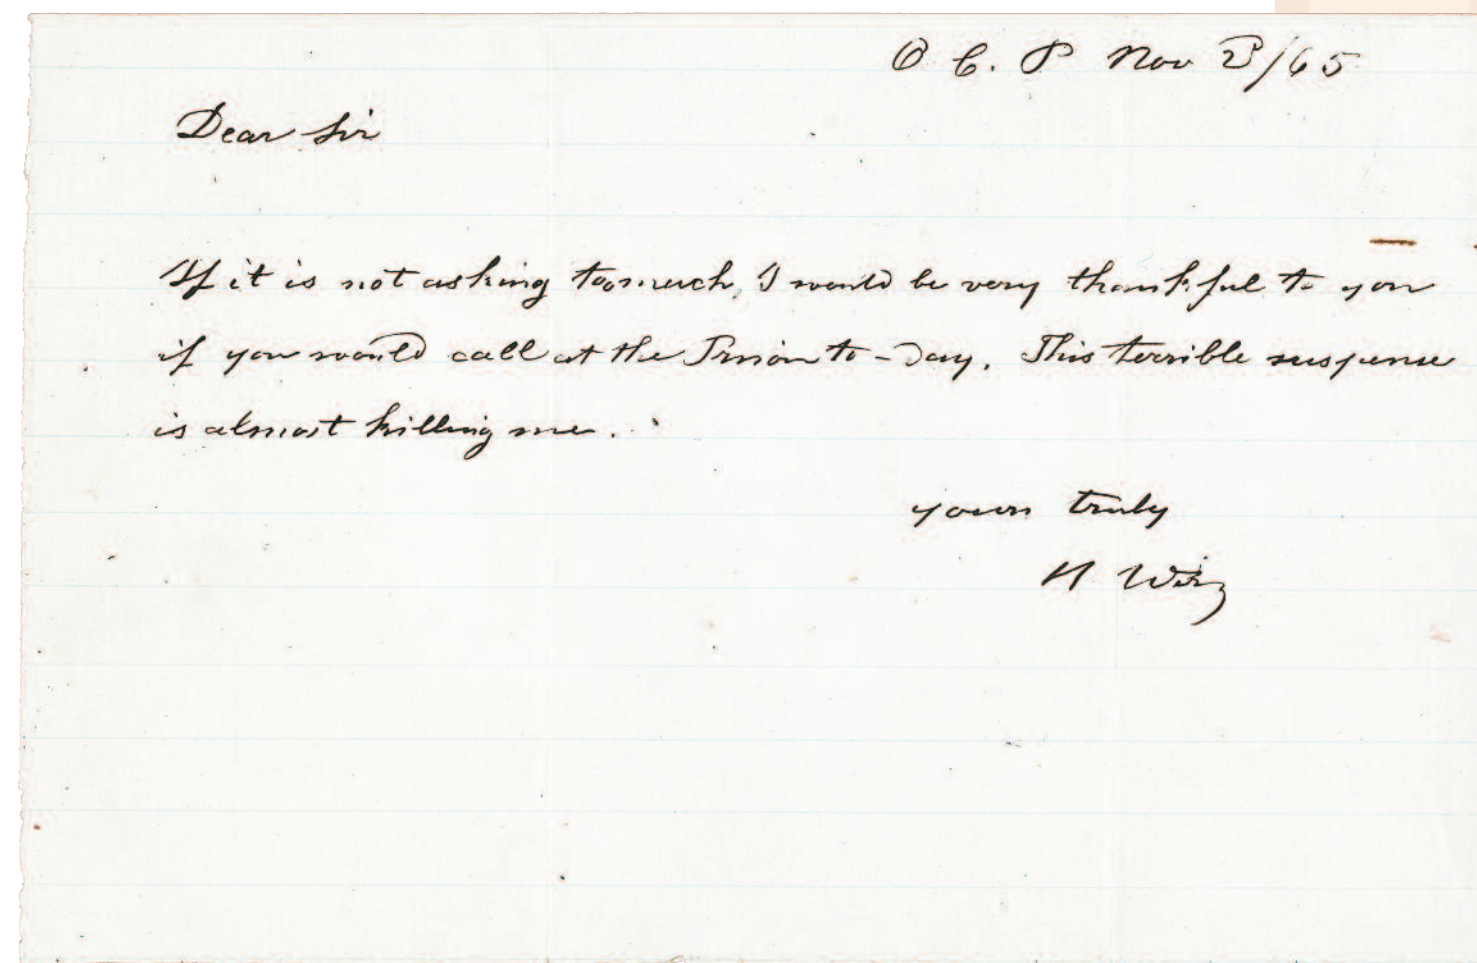 O. C. P Nov 2/65
Dear Sir
If it is not asking too much, I would be very thankful to you
if you would call at the Prison to-day. This terrible suspense
is almost killing me.
yours truly
H Wirz